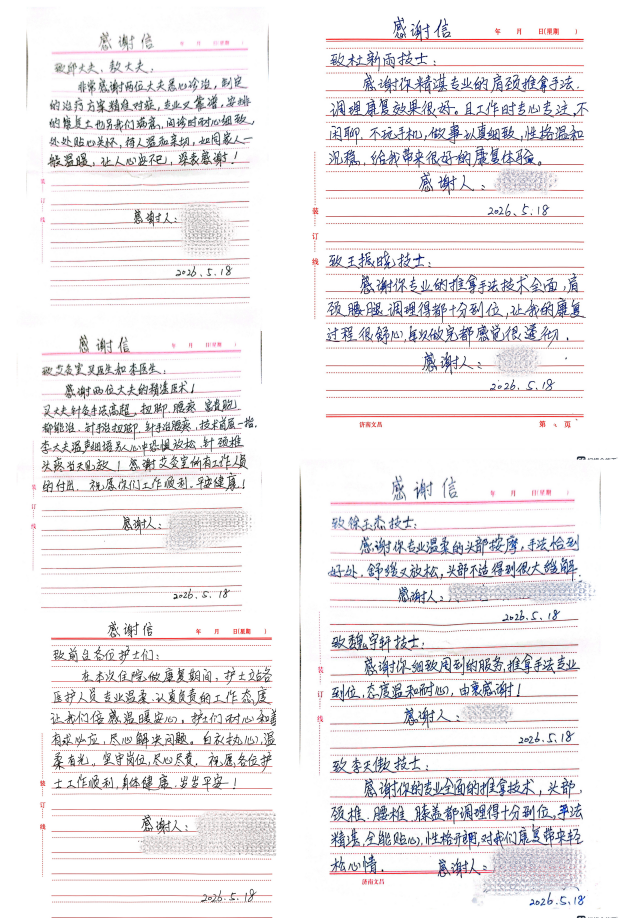 感谢信
年 月 日(星期 )
致邱大夫、敖大夫、
非常感谢两位大夫悉心诊治，制定
的治疗方案精准对症，专业又靠谱，安排
的康复士也与我们病离，问诊时耐心细致，
处处贴心关怀，待人温和亲切，如同家人一
般温暖，让人心安不已，深表感谢！
感谢人：
2026.5.18
装订线
感谢信
年 月 日(星期 )
致艾灸室吴医生和李医生：
感谢两位大夫的精湛医术！
吴大夫针灸手法高超，扭脚、腰疼、
都能治，针到治扭脚，针到治腰疼，技术首屈一指。
李大夫温声细语另人心中恐惧放松，针颈椎
头疼当天见效！感谢艾灸室所有工作人员
的付出，祝愿你们工作顺利，平安健康！
感谢人：
2026.5.18
装订线
感谢信
年 月 日(星期 )
致前台各位护士们：
在本次住院做康复期间，护士站各
医护人员专业温柔、认真负责的工作态度
让我们倍感温暖安心。护士们耐心和善
有求必应，尽心解决问题。白衣执心，温
柔有光，坚守岗位，尽心尽责。祝愿各位护
士工作顺利，身体健康，岁岁平安！
感谢人：
2026.5.18
装订线
感谢信
年 月 日(星期 )
致杜新雨技士：
感谢你精湛专业的肩颈推拿手法，
调理康复效果很好。且工作时专心专注，不
闲聊，不玩手机，做事认真细致，性格温和
沉稳，给我带来很好的康复体验。
感谢人：
2026.5.18
致王振晓技士：
感谢你专业的推拿手法技术全面，肩
颈腰腿调理得都十分到位，让我的康复
过程很舒心，每次做完都感觉很透彻.
感谢人：
2026.5.18
装订线
济南文昌
第 页
感谢信
年 月 日(星期 )
致徐玉杰技士：
感谢你专业温柔的头部按摩，手法恰到
好处，舒缓又放松，头部不适得到很大缓解.
感谢人：
2026.5.18
致魏宇轩技士：
感谢你细致周到的服务，推拿手法专业
到位，态度温和耐心，由衷感谢！
感谢人：
2026.5.18
致李天傲技士：
感谢你的专业全面的推拿技术，头部，
颈椎、腰椎、膝盖都调理得十分到位，手法
精湛，全能贴心，性格开朗，对我们康复带来轻
松心情.
感谢人：
2026.5.18
装订线
济南文昌